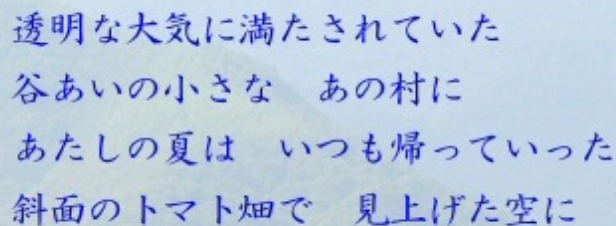 透明な大気に満たされていた
谷あいの小さな　あの村に
あたしの夏は　いつも帰っていった
斜面のトマト畑で　見上げた空に